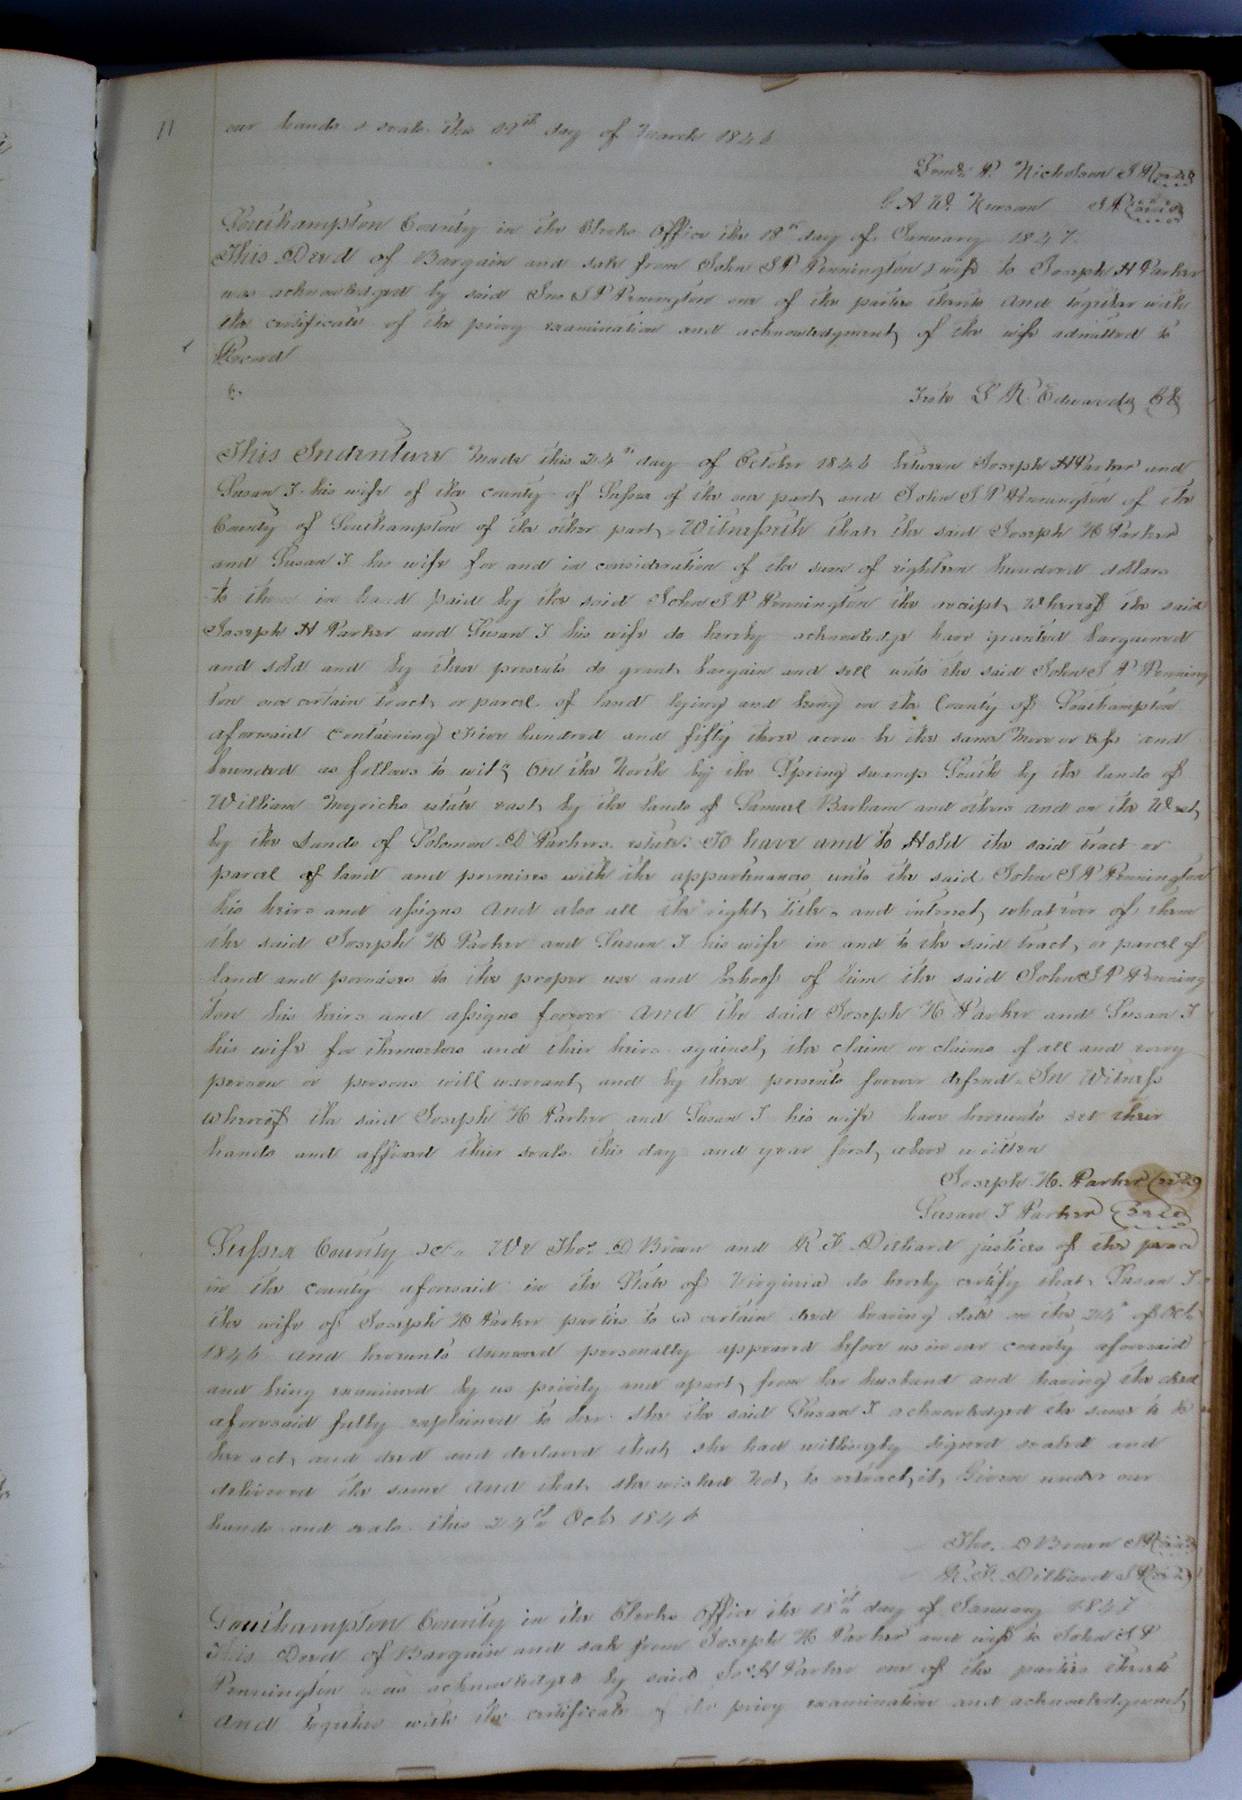 11
our hands & seals this 19th day of March 1846
A. Nicholson J P (seal)
J P (seal)
Southampton County in the Clerks Office the 18th day of January 1847
This Deed of Bargain and sale from John S P Pennington & wife to Joseph H Parker
was acknowledged by said Jno S P Pennington one of the parties thereto and together with
the certificate of the privy examination and acknowledgment of the wife admitted to
Record
Teste L R Edwards Clk
This Indenture Made this 24th day of October 1846 between Joseph H Parker and
Susan J his wife of the county of Sussex of the one part and John S P Pennington of the
County of Southampton of the other part Witnesseth that the said Joseph H Parker
and Susan J his wife for and in consideration of the sum of eighteen hundred dollars
to them in hand paid by the said John S P Pennington the receipt whereof the said
Joseph H Parker and Susan J his wife do hereby acknowledge have granted bargained
and sold and by these presents do grant bargain and sell unto the said John S P Penning
ton one certain tract or parcel of land lying and being in the County of Southampton
aforesaid containing Five hundred and fifty three acres be the same more or less and
bounded as follows to wit, On the North by the Spring swamp South by the lands of
William Myricks estate east by the lands of Samuel Barham and others and on the West
by the Lands of Solomon D Parkers estate. To have and to Hold the said tract or
parcel of land and premises with the appurtenances unto the said John S P Pennington
his heirs and assigns And also all the right, title, and interest whatever of them
the said Joseph H Parker and Susan J his wife in and to the said tract or parcel of
land and premises to the proper use and behoof of him the said John S P Penning
ton his heirs and assigns forever And the said Joseph H Parker and Susan J
his wife for themselves and their heirs against the claim or claims of all and every
person or persons will warrant and by these presents forever defend. In Witness
whereof the said Joseph H Parker and Susan J his wife have hereunto set their
hands and affixed their seals this day and year first above written
Joseph H. Parker (seal)
Susan J Parker (seal)
Sussex County sc. We Thos D Brown and R F Dillard justices of the peace
in the county aforesaid in the State of Virginia do hereby certify that Susan J
the wife of Joseph H Parker parties to a certain deed bearing date on the 24th of Oct
1846 and hereunto annexed personally appeared before us in our county aforesaid
and being examined by us privily and apart from her husband and having the deed
aforesaid fully explained to her she the said Susan J acknowledged the same to be
her act and deed and declared that she had willingly signed sealed and
delivered the same and that she wished not to retract it, Given under our
hands and seals this 24th Oct 1846
Tho. D Brown J P (seal)
R. F. Dillard J P (seal)
Southampton County in the Clerks Office the 18th day of January 1847
This Deed of Bargain and sale from Joseph H Parker and wife to John S P
Pennington was acknowledged by said Jos H Parker one of the parties thereto
and together with the certificate of the privy examination and acknowledgment